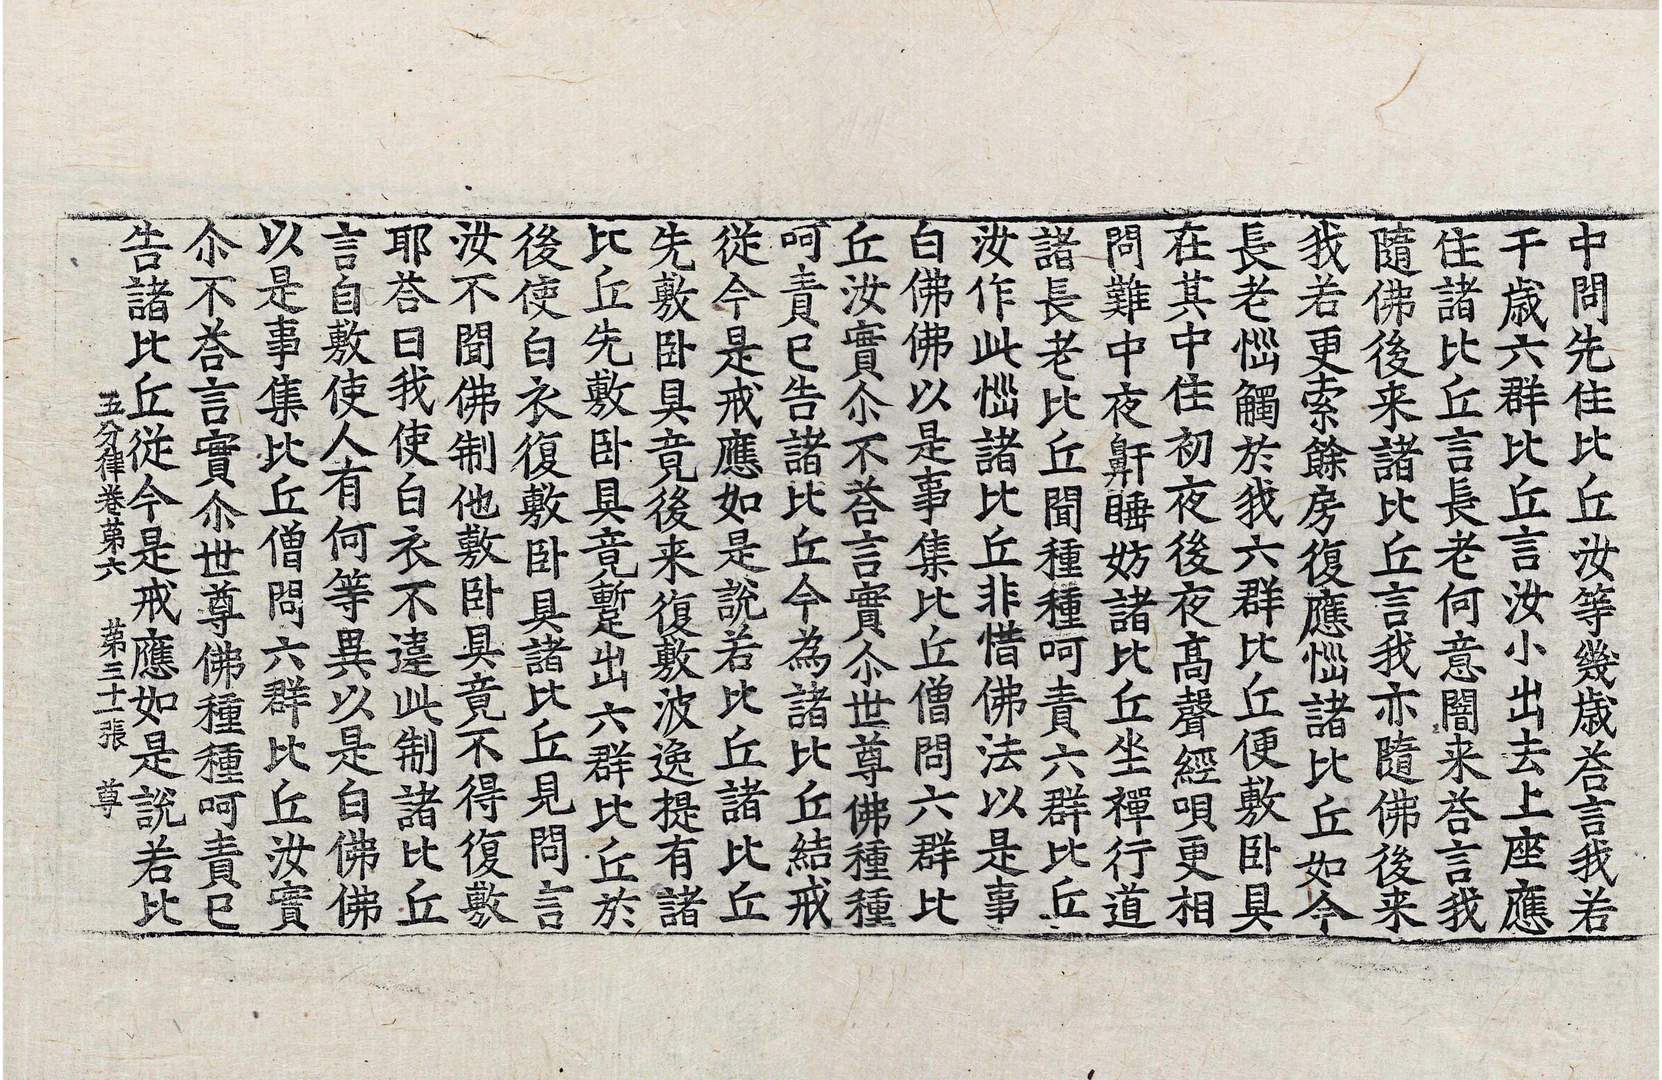 中問先住比丘汝等幾歳荅言我若
干歳六群比丘言汝小出去上座應
住諸比丘言長老何意闇来荅言我
隨佛後来諸比丘言我亦隨佛後来
我若更索餘房復應惱諸比丘如今
長老惱觸於我六群比丘便敷卧具
在其中住初夜後夜高聲經唄更相
問難中夜鼾睡妨諸比丘坐禪行道
諸長老比丘聞種種呵責六群比丘
汝作此惱諸比丘非惜佛法以是事
白佛佛以是事集比丘僧問六群比
丘汝實尒不荅言實尒世尊佛種種
呵責已告諸比丘今為諸比丘結戒
從今是戒應如是說若比丘諸比丘
先敷卧具竟後来復敷波逸提有諸
比丘先敷卧具竟蹔出六群比丘於
後使白衣復敷卧具諸比丘見問言
汝不聞佛制他敷卧具竟不得復敷
耶荅曰我使白衣不違此制諸比丘
言自敷使人有何等異以是白佛佛
以是事集比丘僧問六群比丘汝實
尒不荅言實尒世尊佛種種呵責已
告諸比丘從今是戒應如是說若比
五分律卷第六 第三十張 尊